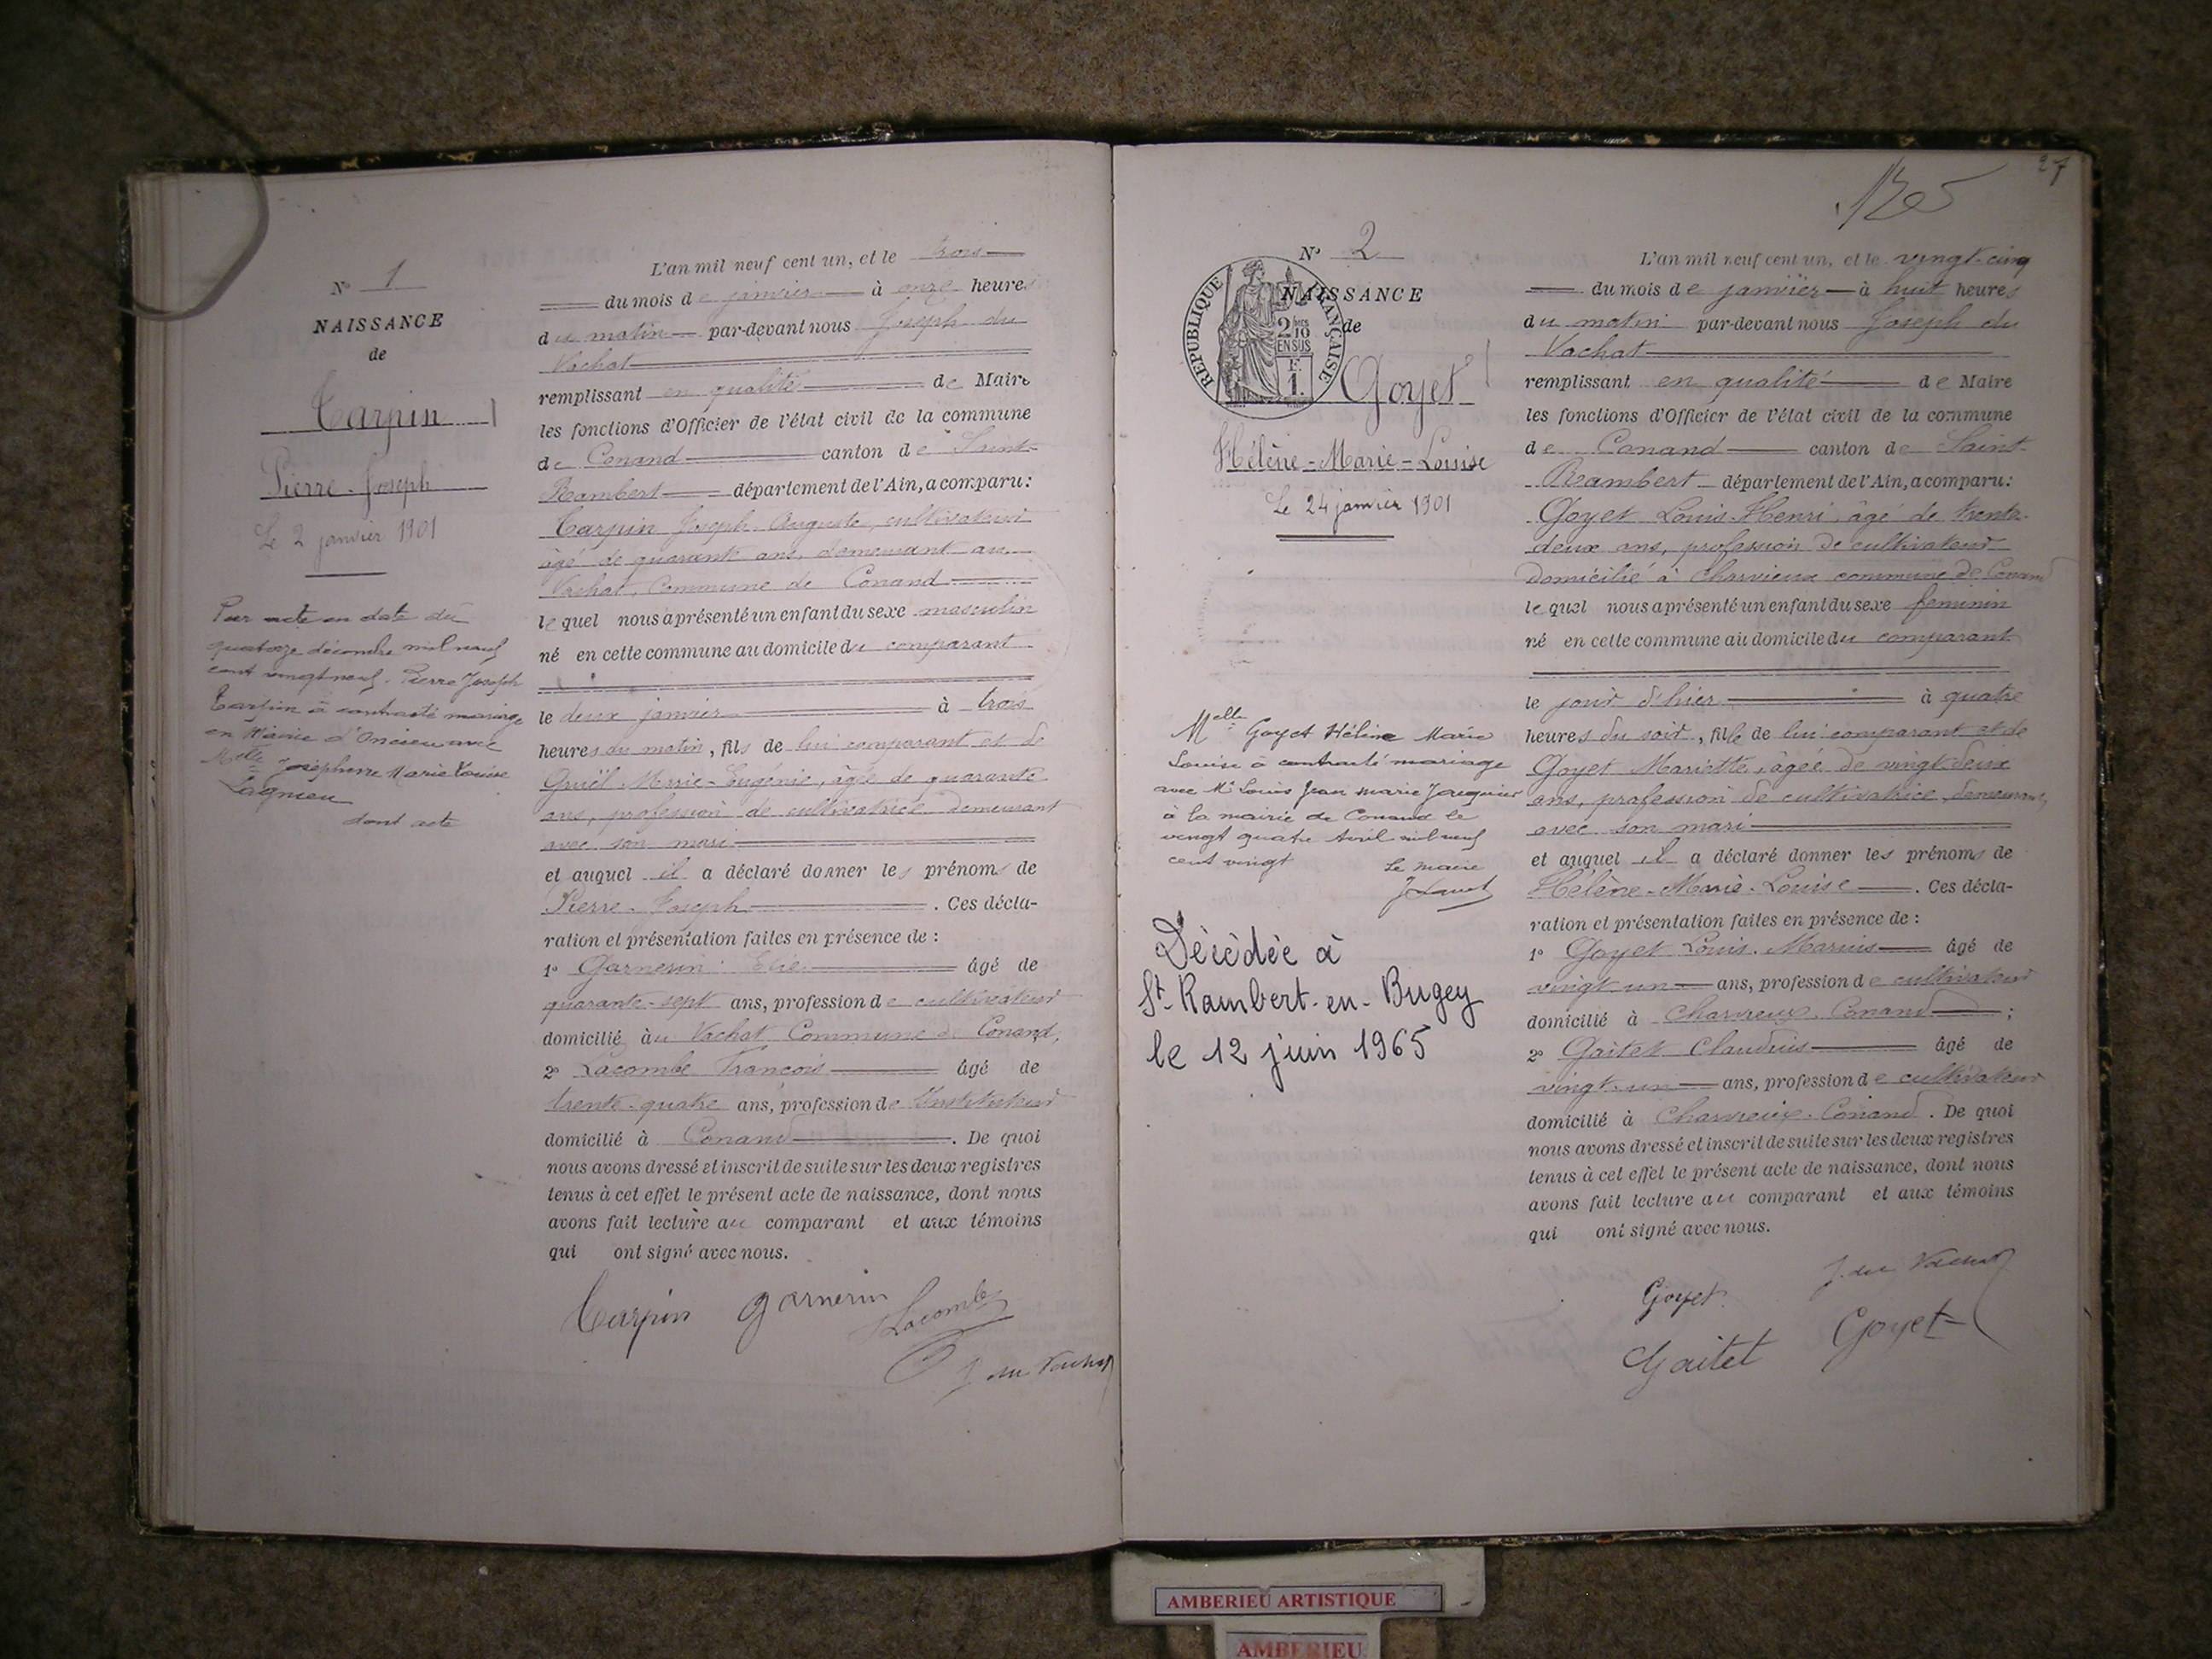 N° 1
NAISSANCE
de
Carpin
Pierre-Joseph
Le 2 janvier 1901
Par acte en date du
quatorze décembre mil neuf
cent vingt neuf. Pierre Joseph
Carpin a contracté mariage
en Mairie d'Oncieu avec
Melle Josephine Marie Louise
dont acte
L'an mil neuf cent un, et le trois
du mois de janvier à onze heures
du matin par-devant nous Joseph du
Vachat
remplissant en qualité de Maire
les fonctions d'Officier de l'état civil de la commune
de Conand canton de Saint-
Rambert département de l'Ain, a comparu:
Carpin Joseph Auguste, cultivateur
âgé de quarante ans, demeurant au
Vachat, Commune de Conand
lequel nous a présenté un enfant du sexe masculin
né en cette commune au domicile du comparant
le deux janvier à trois
heures du matin, fils de lui comparant et de
Marie-Eugénie, âgée de quarante
ans, profession de cultivatrice demeurant
avec son mari
et auquel il a déclaré donner les prénoms de
Pierre-Joseph. Ces décla-
ration et présentation faites en présence de :
1° Garnerin Elie âgé de
quarante-sept ans, profession de cultivateur
domicilié au Vachat Commune de Conand,
2° Lacombe François âgé de
trente-quatre ans, profession de Instituteur
domicilié à Conand. De quoi
nous avons dressé et inscrit de suite sur les deux registres
tenus à cet effet le présent acte de naissance, dont nous
avons fait lecture au comparant et aux témoins
qui ont signé avec nous.
Carpin Garnerin
Lacombe
J du Vachat
27
N° 2
NAISSANCE
de
REPUBLIQUE FRANÇAISE
2/10 EN SUS
F. 1.
Goyet
Hélène-Marie-Louise
Le 24 janvier 1901
Melle Goyet Hélène Marie
Louise a contracté mariage
avec Mr Louis Jean Marie Jacquier
à la mairie de Conand le
vingt quatre Avril mil neuf
cent vingt
Le Maire
Décèdèe à
St Rambert-en-Bugey
le 12 juin 1965
L'an mil neuf cent un, et le vingt-cinq
du mois de janvier à huit heures
du matin par-devant nous Joseph du
Vachat
remplissant en qualité de Maire
les fonctions d'Officier de l'état civil de la commune
de Conand canton de Saint-
Rambert département de l'Ain, a comparu:
Goyet Louis-Henri, âgé de trente-
deux ans, profession de cultivateur
domicilié à Charvieux commune de Conand
lequel nous a présenté un enfant du sexe feminin
né en cette commune au domicile du comparant
le jour d'hier à quatre
heures du soir, fille de lui comparant et de
Goyet Mariette, âgée de vingt-deux
ans, profession de cultivatrice demeurant
avec son mari
et auquel il a déclaré donner les prénoms de
Hélène-Marie-Louise. Ces décla-
ration et présentation faites en présence de :
1° Goyet Louis-Marius âgé de
vingt-un ans, profession de cultivateur
domicilié à Charvieux, Conand ;
2° Gaitet Claudius âgé de
vingt-un ans, profession de cultivateur
domicilié à Charvieux-Conand. De quoi
nous avons dressé et inscrit de suite sur les deux registres
tenus à cet effet le présent acte de naissance, dont nous
avons fait lecture au comparant et aux témoins
qui ont signé avec nous.
J. du Vachat
Goyet
Goyet
Gaitet
AMBERIEU ARTISTIQUE
AMBERIEU